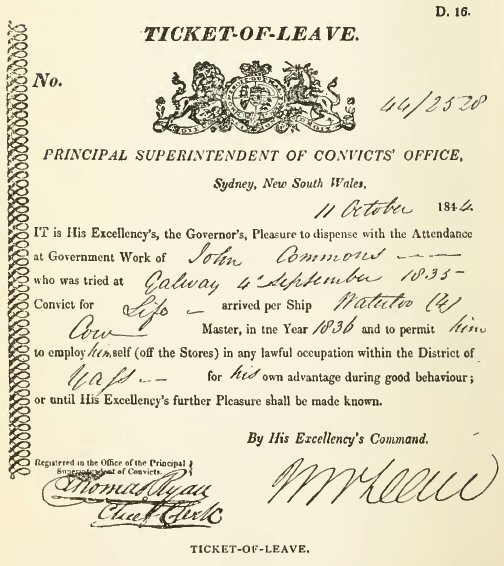 D. 16.
TICKET-OF-LEAVE.
No.
44/2528
PRINCIPAL SUPERINTENDENT OF CONVICTS' OFFICE,
Sydney, New South Wales,
11 October 1844.
IT is His Excellency's, the Governor's, Pleasure to dispense with the Attendance
at Government Work of John Commons
who was tried at Galway 4th September 1835
Convict for Life arrived per Ship Waterloo (4)
Cow Master, in tne Year 1836 and to permit him
to employ himself (off the Stores) in any lawful occupation within the District of
Yass for his own advantage during good behaviour;
or until His Excellency's further Pleasure shall be made known.
By His Excellency's Command.
Registered in the Office of the Principal
Superintendent of Convicts.
Thomas Ryan
Chief Clerk
TICKET-OF-LEAVE.